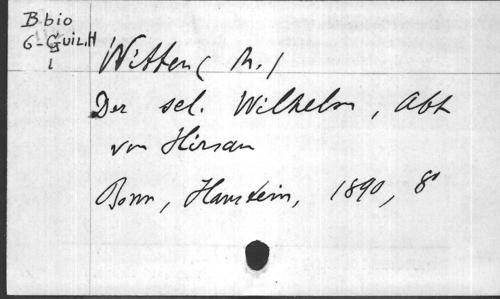 B bio
G-GUIL.H
1
Witten (M.)
Der sel. Wilhelm, Abt
von Hirsau
Bonn, Hanstein, 1890, 8°